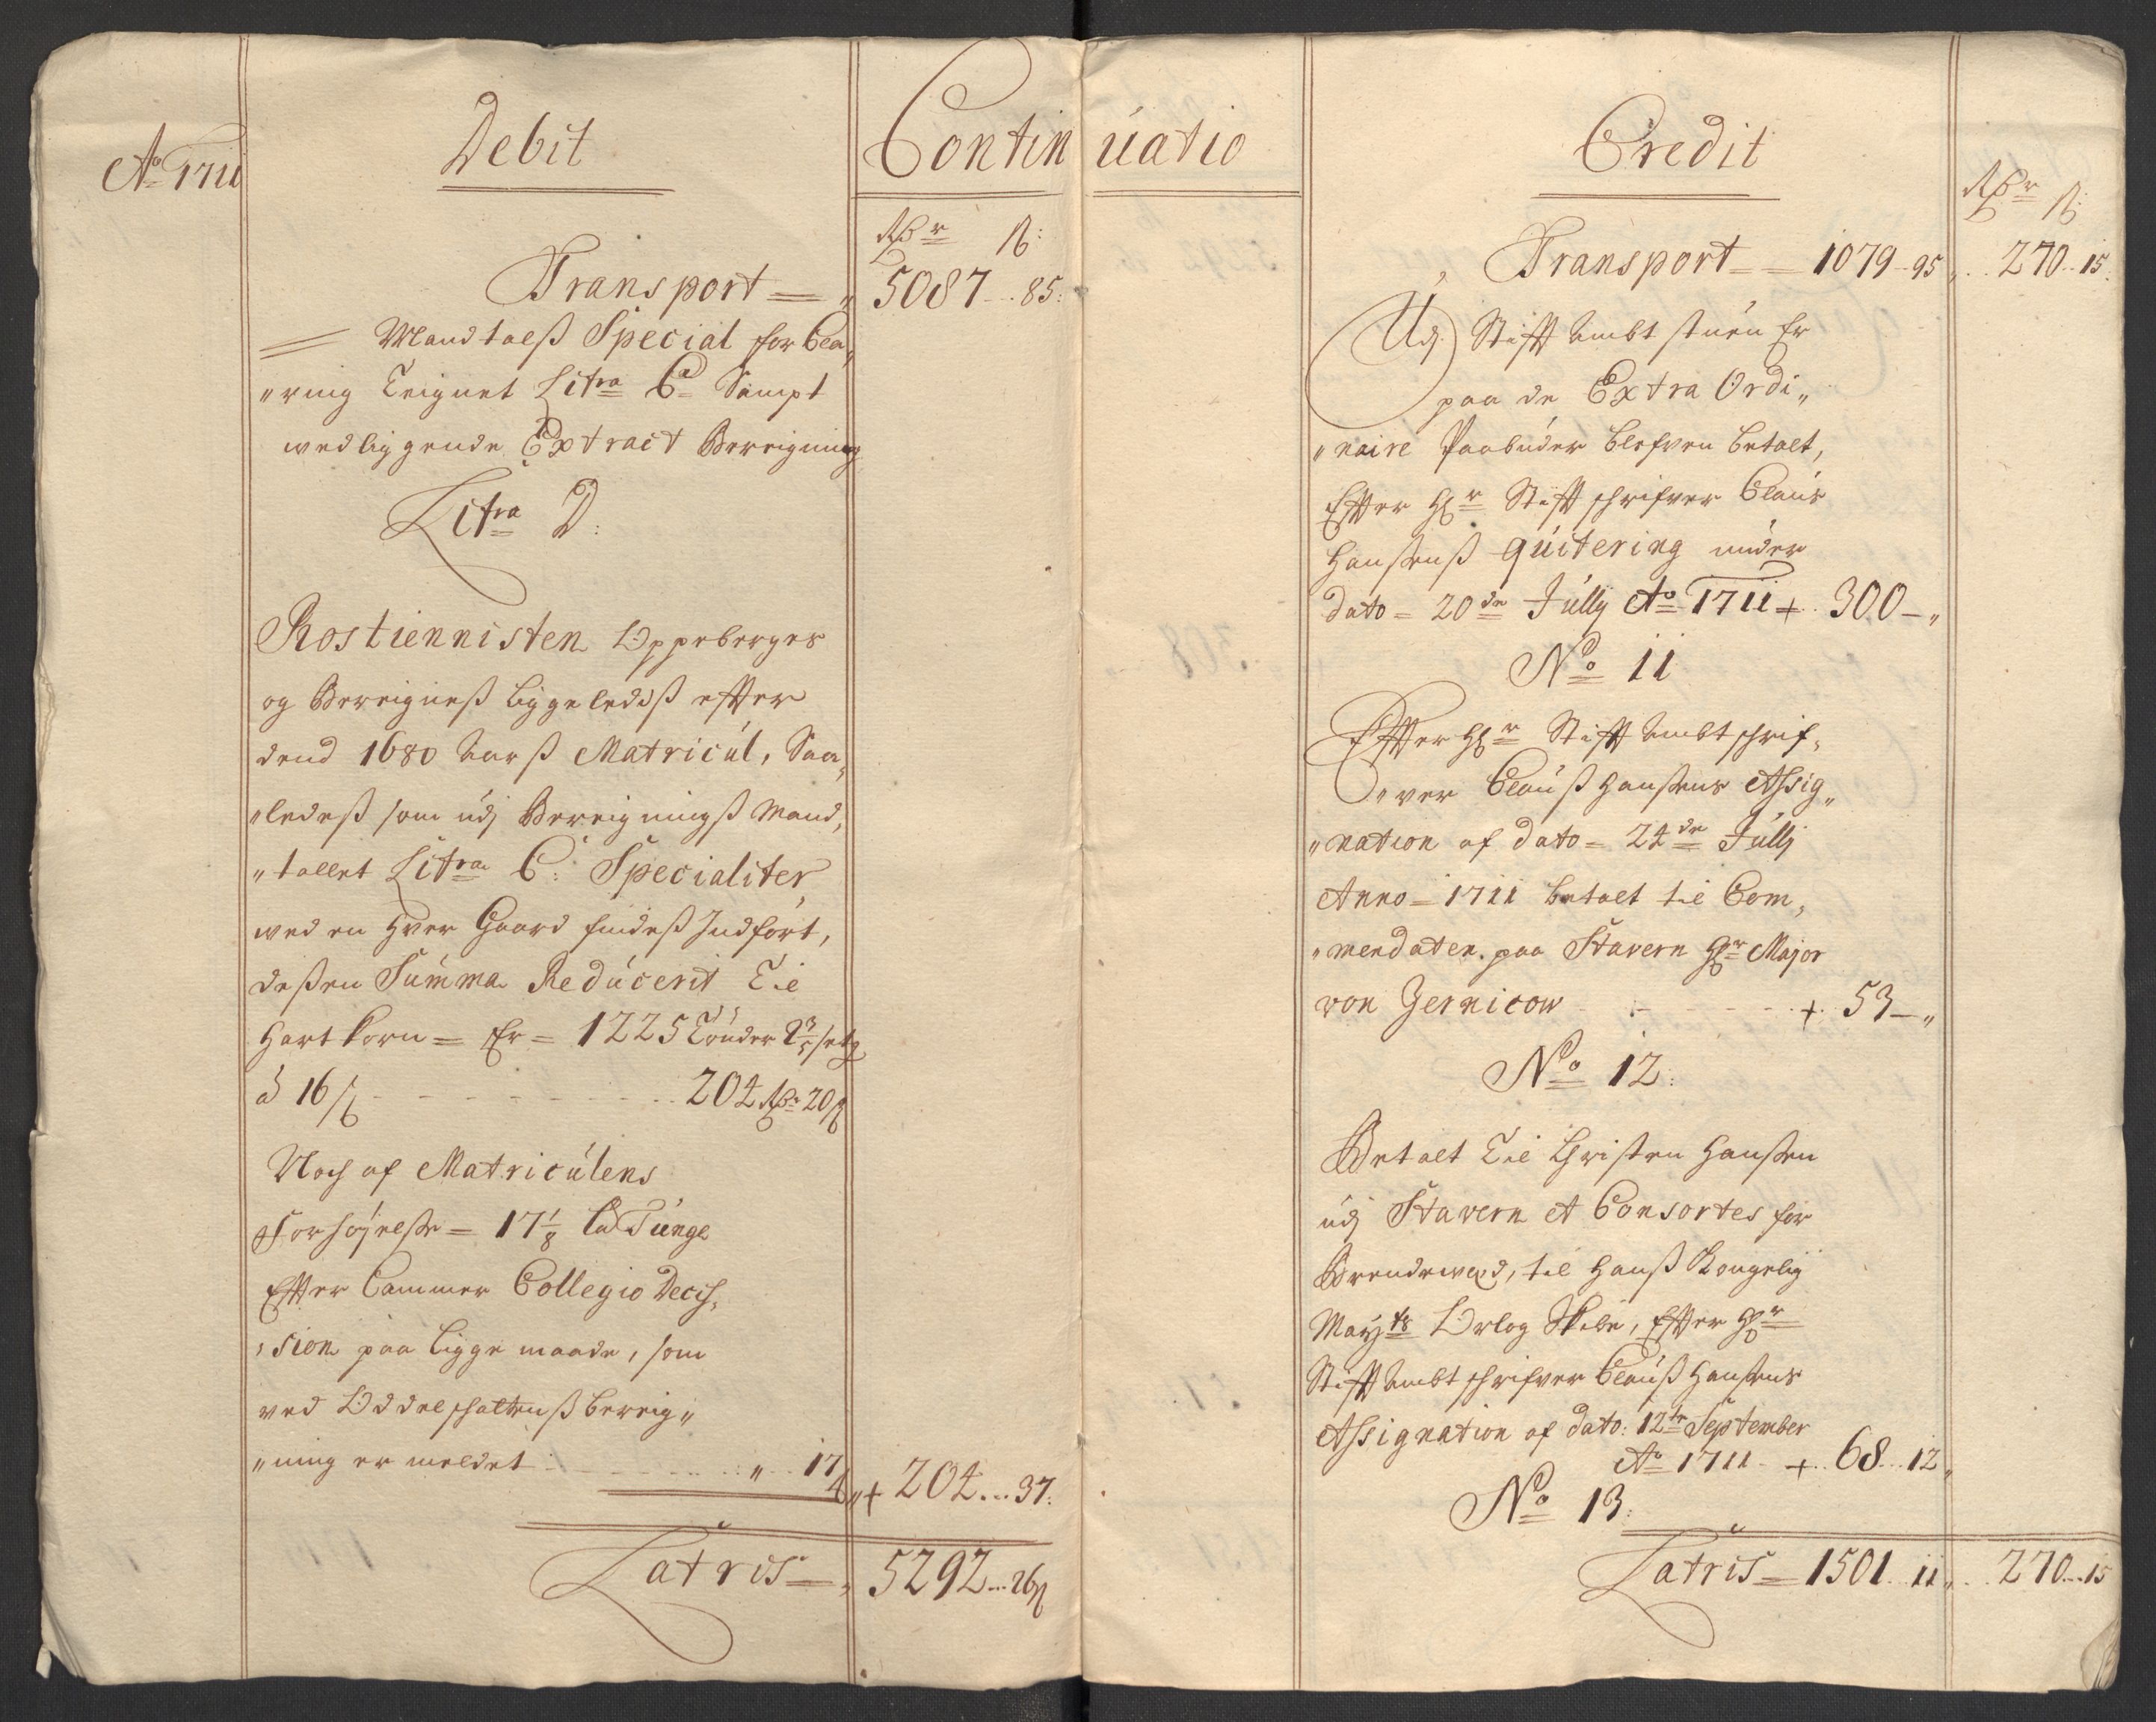 Ao 1711
Debit
Continuatio
Rdr ß:
Transport = 5087 .. 85:
Mandtalß Special forkla„
„ring Teignet Litra C Sampt
wedliggende Extract Bereigning
Litra D:
Rostiennisten Oppeberges
og Bereigneß liggeledeß effter
dend 1680 Aarß Matricúl, Saa„
„ledeß som údj Bereigningß Mand„
„tallet Litra C: Specialiter
wed en Hver Gaard findeß Indført,
deßen Súmma Redúcerit Til
Hartkorn = Er = 1225 Tønder 2 3/5 setg
à 16 ß - - - - 204 Rdr 20 ß
Noch af Matricúlens
Forhøjelße = 17 1/8 Lad Túnge
Effter Cammer Collegio Decis„
„sion paa ligge maade, som
ved Oddelschattenß bereig„
„ning er meldet - - - „ .. 17 ß „ + 204 ... 37:
Latris = 5292 ... 26 ß
Credit
Rdr ß:
Transport = 1079 - 95 „ .. 270 .. 15
Údj Stifft Ambtstúen Er
paa de Extra Ordi„
„naire Paabúder blefven betalt,
Effter Hr Stifftschrifver Claús
Hanßenß qúitering under
dato = 20de Júlly Ao 1711 + 300 - „
No 11
Effter Hr Stifft Ambtschrif„
„ver Claúß Hanßens Assig„
„nation af dato = 24de Júllj
Anno = 1711 betalt til Com„
„mendaten paa Stavern Hr Major
von Zernicow - - - - + 53 - „
No 12:
Betalt Til Christen Hanßen
údj Stavern et Consortes for
Brendewed, til Hanß Kongelig
Mayts Orlog Skibe, Effter Hr
Stifft Ambtschrifver Claúß Hanßens
Assignation af dato: 12te September
Ao 1711 - + .. 68 .. 12 „
No 13:
Latris = 1501 .. 11 „ .. 270 .. 15